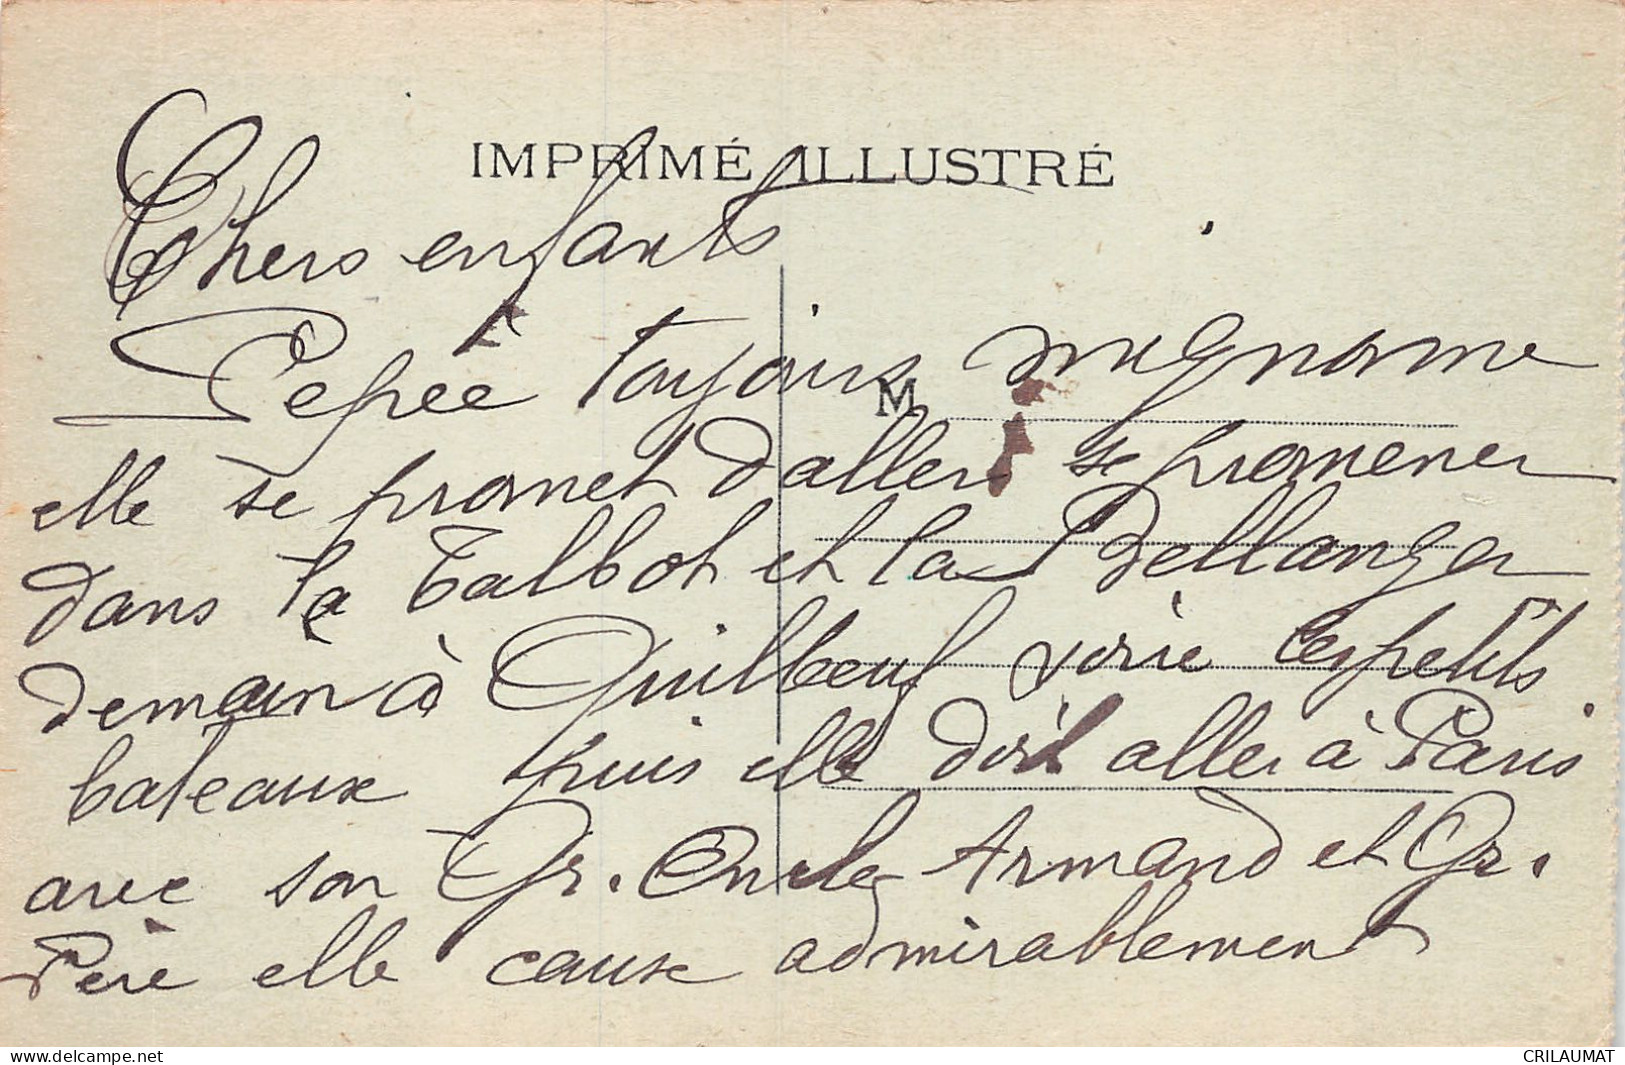 IMPRIMÉ ILLUSTRÉ
Chers enfants
Pepée toujours mignonne
M
elle se promet d'aller se promener
dans la Talbot et la Bellanger
demain à Quilbeuf voir les petits
bateaux puis elle doit aller à Paris
avec son Gr. Oncle Armand et Gr.
Père elle cause admirablement
www.delcampe.net
CRILAUMAT